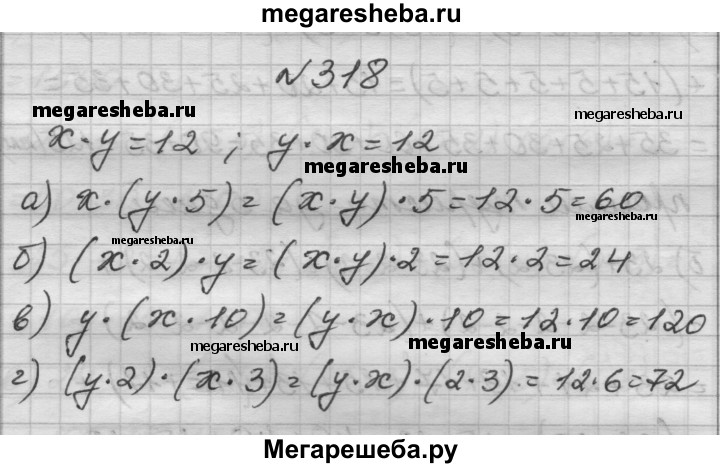 megaresheba.ru
№318
megaresheba.ru
megaresheba.ru
x·y=12 ; y·x=12
megaresheba.ru
а) x·(y·5)=(x·y)·5=12·5=60
megaresheba.ru
megaresheba.ru
б) (x·2)·y=(x·y)·2=12·2=24
в) y·(x·10)=(y·x)·10=12·10=120
megaresheba.ru
megaresheba.ru
г) (y·2)·(x·3)=(y·x)·(2·3)=12·6=72
Мегарешеба.ру